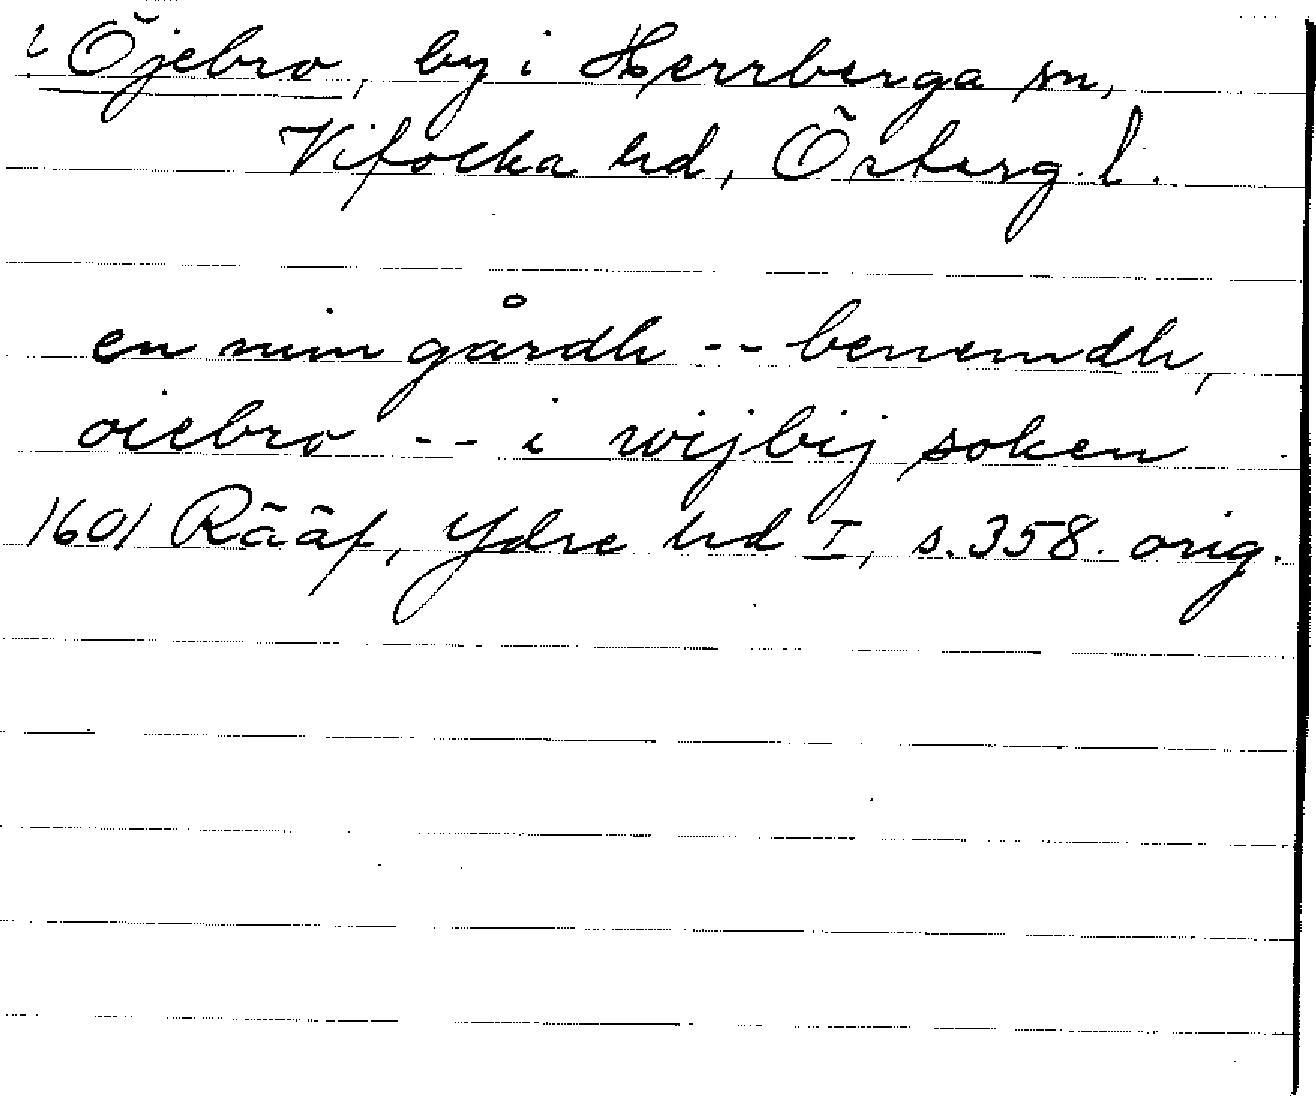 ? Öjebro, by i Herrberga sn,
Vifolka hd, Österg. l.
en min gårdh -- benemdh,
oiebro -- i wijbij soken
1601 Rääf, Ydre hd I, s. 358. orig.